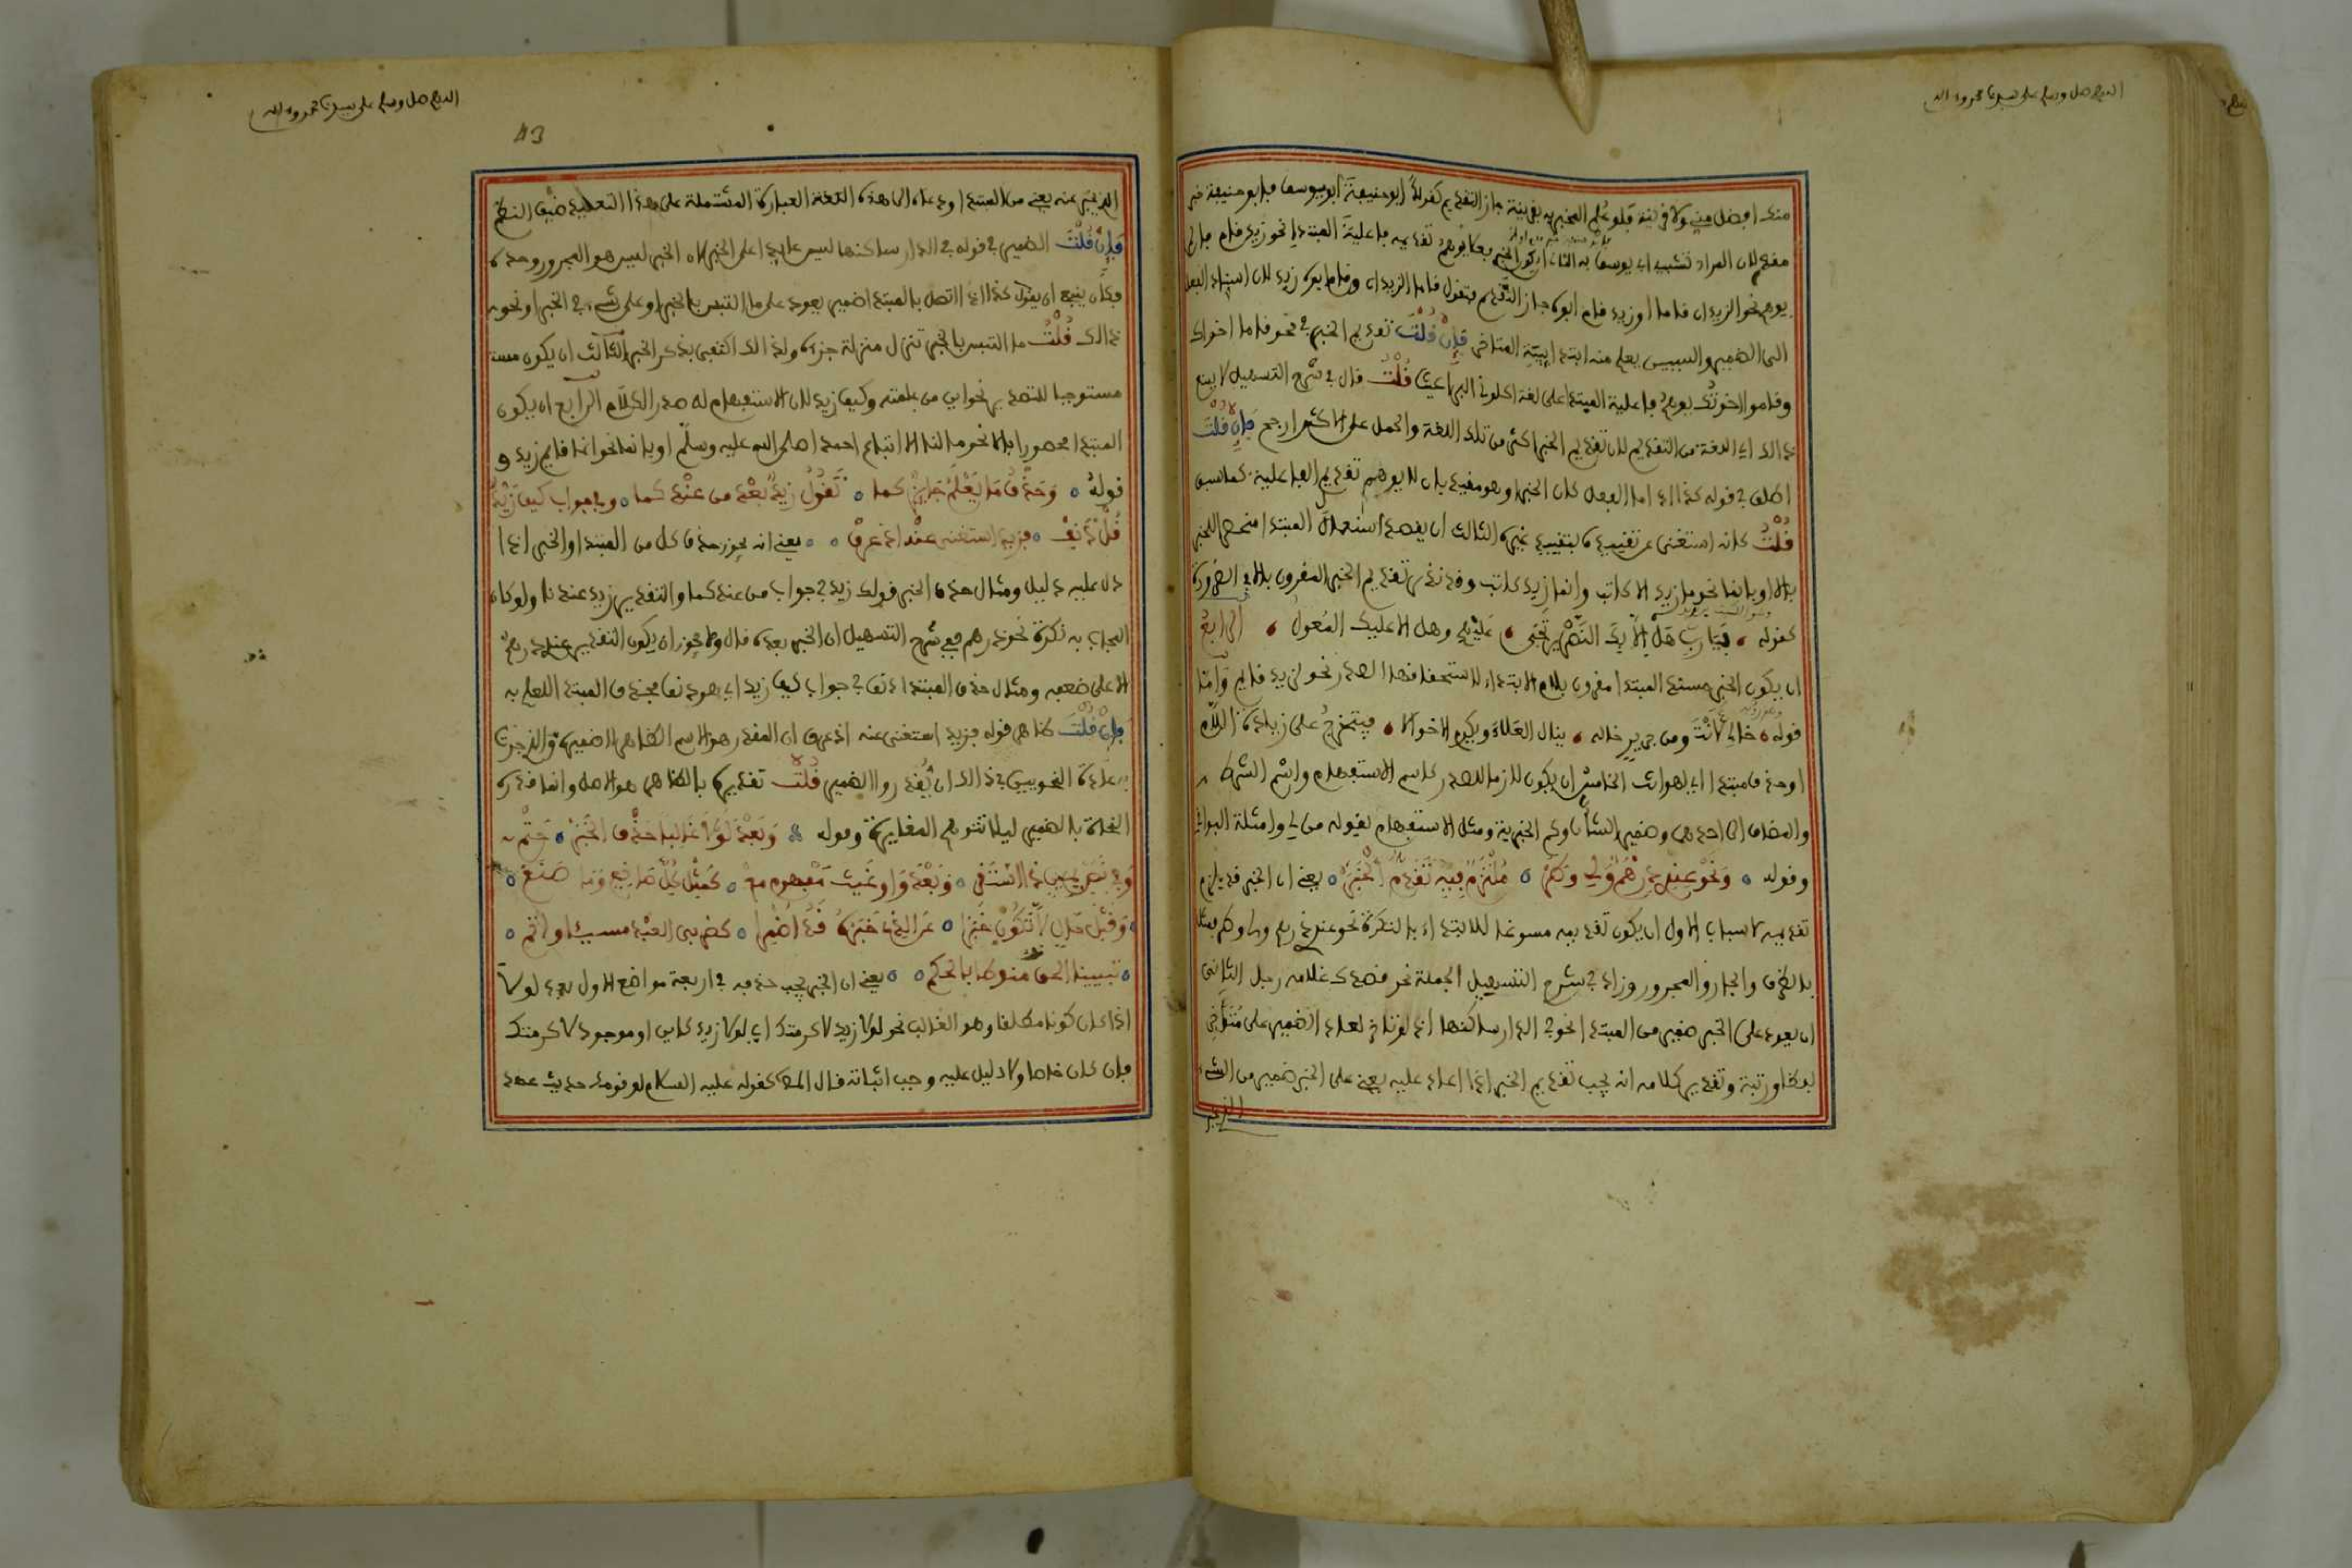 اللهم صل وسلم على سيدنا محمد وءاله
منك افضل مني ولا قرينة فلو علم المخبر به بقرينة جاز التقديم كقولك ابو حنيفة ابو يوسف فابو حنيفة خبر
مقدم لان المراد تشبيه ابي يوسف به الثاني ان يكون الخبر فعلا يوهم تقديمه فاعلية المبتدا نحو زيد قام فان لم
يوهم نحو الزيدان قاما او زيد قام ابوه جاز التقديم فتقول قاما الزيدان وقام ابوه زيد لان اسناد الفعل
الى الضمير والسببي يعلم منه ابتدائية المتاخر فإن قلت تقديم الخبر في نحو قاما اخواك
وقاموا اخوتك يوهم فاعلية المبتدا على لغة اكلوني البراغيث قلت قال في شرح التسهيل لا يمنع
ذالك اي اللغة من التقديم لان تقديم الخبر اكثر من تلك اللغة والحمل على الاكثر ارجح فإن قلت
اطلق في قوله كذا اذا ما الفعل كان الخبرا وهو مقيد بان لا يوهم تقديم الفاعلية كما سبق
قلت كانه استغنى عن تقييده بتقييد غيره الثالث ان يقصد استعمال المبتدا منحصرا للخبر
بالا او بانما نحو ما زيد الا كاتب وانما زيد كاتب وقد ندر تقديم الخبر المقرون بالا في الضرورة
كقوله فيا رب هل الا بك النصر يرتجى عليهم وهل الا عليك المعول الرابع
ان يكون الخبر مسند المبتدا مقرون بلام الابتداء لاستحقاقها الصدر نحو لزيد قايم واما
قوله خالي لانت ومن جرير خاله ينال العلاء ويكرم الاخوالا فيتخرج على زيادة اللام
او حذف مبتدا اي لهو انت الخامس ان يكون لازما للصدر كاسم الاستفهام واسم الشرط
والمضاف الى احدهما وضمير الشان وكم الخبرية ومثل الاستفهام بقوله من لي وامثلة البواقي
وقوله ونحو عندي درهم ولي وطر ملتزم فيه تقدم الخبر يعني ان الخبر قد يلزم
تقديمه لاسباب الاول ان يكون تقديمه مسوغا للابتداء بالنكرة نحو عندي درهم ولي وطر فمثل
بالظرف والجار والمجرور وزاد في شرح التسهيل الجملة نحو قصدك غلامه رجل الثاني
ان يعود على الخبر ضمير من المبتدا نحو في الدار ساكنها اذ لو تاخر لعاد الضمير على متاخر
لفظا ورتبة وتقدير كلامه انه يجب تقديم الخبر اذا عاد عليه يعني على الخبر ضمير من الشيء
الذي يخبر
اللهم صل وسلم على سيدنا محمد وءاله
43
الذي يخبر عنه يعني من المبتدا ودعاه الى هذه العبارة المشتملة على هذا التعقيد ضيق النظم
فإن قلت الضمير في قوله في الدار ساكنها ليس عايدا على الخبر لان الخبر ليس هو المجرور وحده
فكان ينبغي ان يقول كذا اذا اتصل بالمبتدا ضمير يعود على ما التبس بالخبر او على شيء في الخبر او نحو
ذالك قلت ما التبس بالخبر تنزل منزلة جزءه ولذالك اكتفى بذكر الخبر الثالث ان يكون
مستوجبا للتصدير نحو اين من علمته وكيف زيد لان الاستفهام له صدر الكلام الرابع ان يكون
المبتدا محصورا بالا نحو ما لنا الا اتباع احمد صلى الله عليه وسلم او بانما نحو انما قايم زيد و
قوله وحذف ما يعلم جايز كما تقول زيد بعد من عندكما وفي جواب كيف زيد
قل دنف فزيد استغني عنه اذ عرف يعني انه يجوز حذف كل من المبتدا والخبر اذا
دل عليه دليل ومثال حذف الخبر قولك زيد في جواب من عندكما والتقدير زيد عندنا ولو كان
المجاب به نكرة نحو درهم ففي شرح التسهيل ان الخبر بعده قال ولا يجوز ان يكون التقدير عندي درهم
الا على ضعف ومثال حذف المبتدا دنف في جواب كيف زيد اي هو دنف فحذف المبتدا للعلم به
فإن قلت ظاهر قوله فزيد استغني عنه اذ عرف ان المقدر هو الاسم الظاهر لا ضميره والذي جرت
به عادة النحويين في ذالك ان يقدروا الضمير قلت تقديره بالظاهر هو الاصل وانما قدره
النحاة بالضمير ليلا تتوهم المغايرة وقوله وبعد لولا غالبا حذف الخبر حتم
وفي نص يمين ذا استقر وبعد واو عينت مفهوم مع كمثل كل صانع وما صنع
وقبل حال لا تكون خبرا عن الذي خبره قد اضمرا كضربي العبد مسيئا واتم
تبييني الحق منوطا بالحكم يعني ان الخبر يجب حذفه في اربعة مواضع الاول بعد لولا
اذا كان كونا مطلقا وهو الغالب نحو لولا زيد لاكرمتك اي لولا زيد كاين او موجود لاكرمتك
فان كان خاصا ولا دليل عليه وجب اثباته قال المص كقوله عليه السلام لو لا قومك حديث عهد